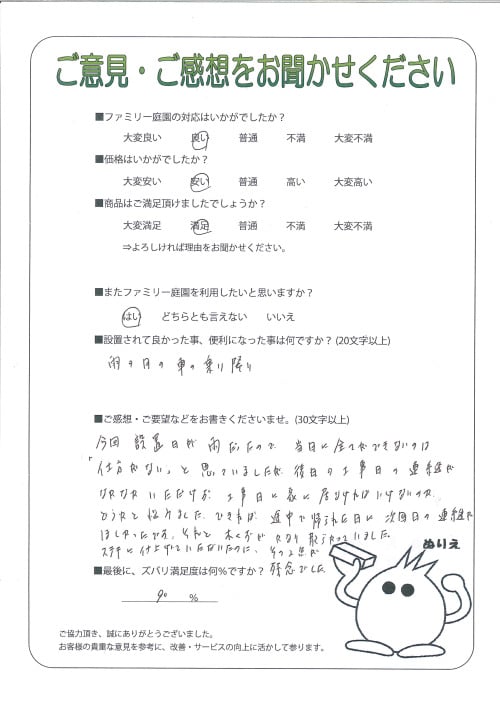 ご意見・ご感想をお聞かせください
■ファミリー庭園の対応はいかがでしたか？
大変良い 良い 普通 不満 大変不満
■価格はいかがでしたか？
大変安い 安い 普通 高い 大変高い
■商品はご満足頂けましたでしょうか？
大変満足 満足 普通 不満 大変不満
⇒よろしければ理由をお聞かせください。
■またファミリー庭園を利用したいと思いますか？
はい どちらとも言えない いいえ
■設置されて良かった事、便利になった事は何ですか？(20文字以上)
雨の日の車の乗り降り
■ご感想・ご要望などをお書きくださいませ。(30文字以上)
今回 設置日が 雨だったので、当日に全てができないのは
「仕方がない」と思っていましたが、後日の工事日の連絡が
いただけず、工事日に家に居なければいけないのか、
どうかと悩みました。できれば、途中で帰られた日に次回日の連絡が
ほしかったです。
ステキに仕上げていただいたのに、その点が
残念でした。
ぬりえ
■最後に、ズバリ満足度は何％ですか？
90 %
ご協力頂き、誠にありがとうございました。
お客様の貴重な意見を参考に、改善・サービスの向上に活かして参ります。